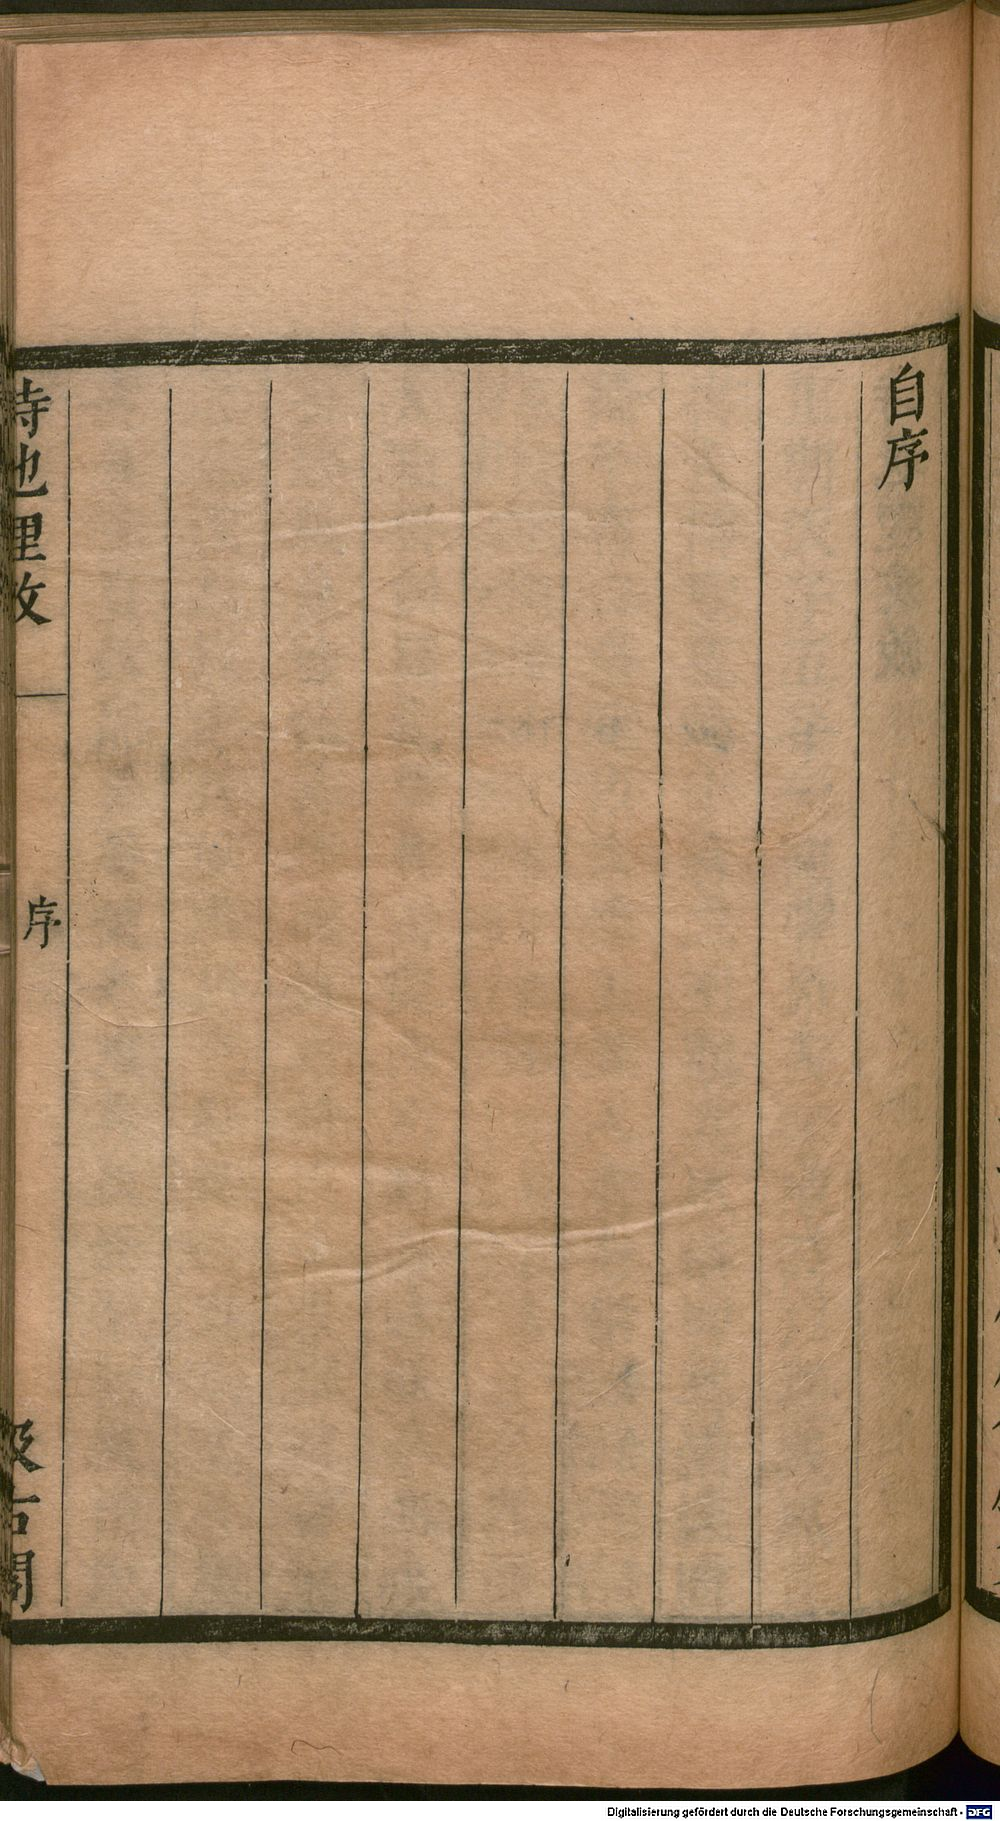 自序
詩地里攷
序
汲古閣
Digitalisierung gefördert durch die Deutsche Forschungsgemeinschaft - DFG